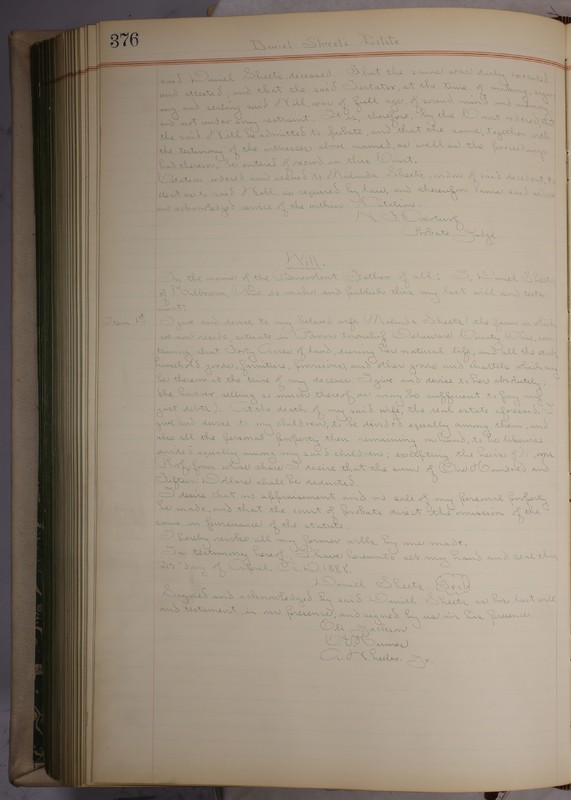 376
Daniel Sheets Estate
said Daniel Sheets, deceased. That the same was duly executed
and attested, and that the said Testator, at the time of making, sign-
ing and sealing said Will, was of full age, of sound mind and memory
and not under any restraint. It is, therefore, by the Court ordered that
the said Will be admitted to probate, and that the same, together with
the testimony of the witnesses above named, as well as the proceedings
had thereon, be entered of record in this Court.
Citation ordered and issued to Malinda Sheets, widow of said decedent, to
elect as to said Will, as required by law, and therefor
and acknowledged service of the within Citation.
Probate Judge
Will.
In the name of the Benevolent Father of all: I, Daniel Sheets
of Ohio do make and publish this my last will and testa-
ment:
Item 1st I give and devise to my beloved wife Malinda Sheets the farm on which
we now reside, situate in township Delaware County Ohio, con-
taining about Forty Acres of land, during her natural life, and all the stock,
household goods, furniture, provisions, and other goods and chattels which may
be thereon at the time of my decease. I give and devise to her absolutely;
she however, selling so much thereof as may be sufficient to pay my
just debts. At the death of my said wife, the real estate aforesaid I
give and devise to my children, to be divided equally among them, and
also all the personal property then remaining unused, to be likewise
divided equally among my said children; excepting the heirs of
from whose share I desire that the sum of One Hundred and
Fifteen Dollars shall be deducted.
I desire that no appraisement and no sale of my personal property
be made, and that the court of probate direct the omission of the
same in pursuance of the statute.
I hereby revoke all my former wills by me made.
In testimony hereof I have hereunto set my hand and seal this
day of April A.D. 1888.
Daniel Sheets (Seal)
Signed and acknowledged by said Daniel Sheets as his last will
and testament in our presence, and signed by us in his presence
Jackson
Wheeler Jr.